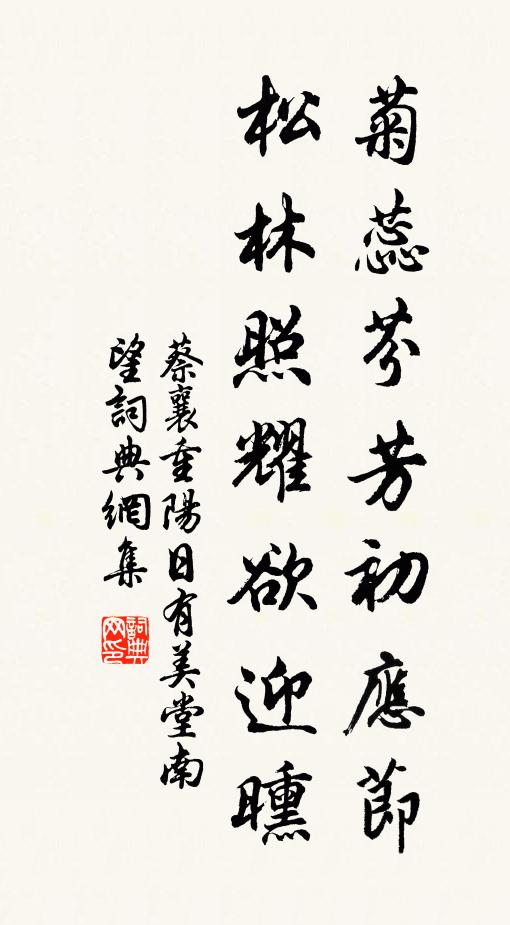 菊蕊芬芳初應節
松林照耀欲迎曛
蔡襄重陽日有美堂南
望詞典網集
詞典网印